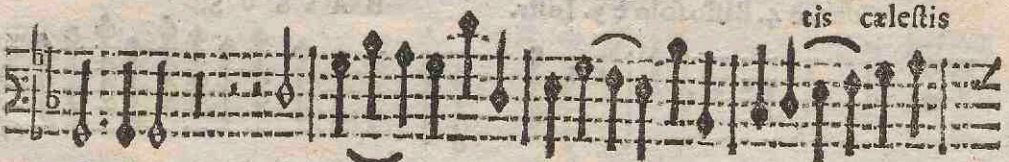 tis cæleſtis